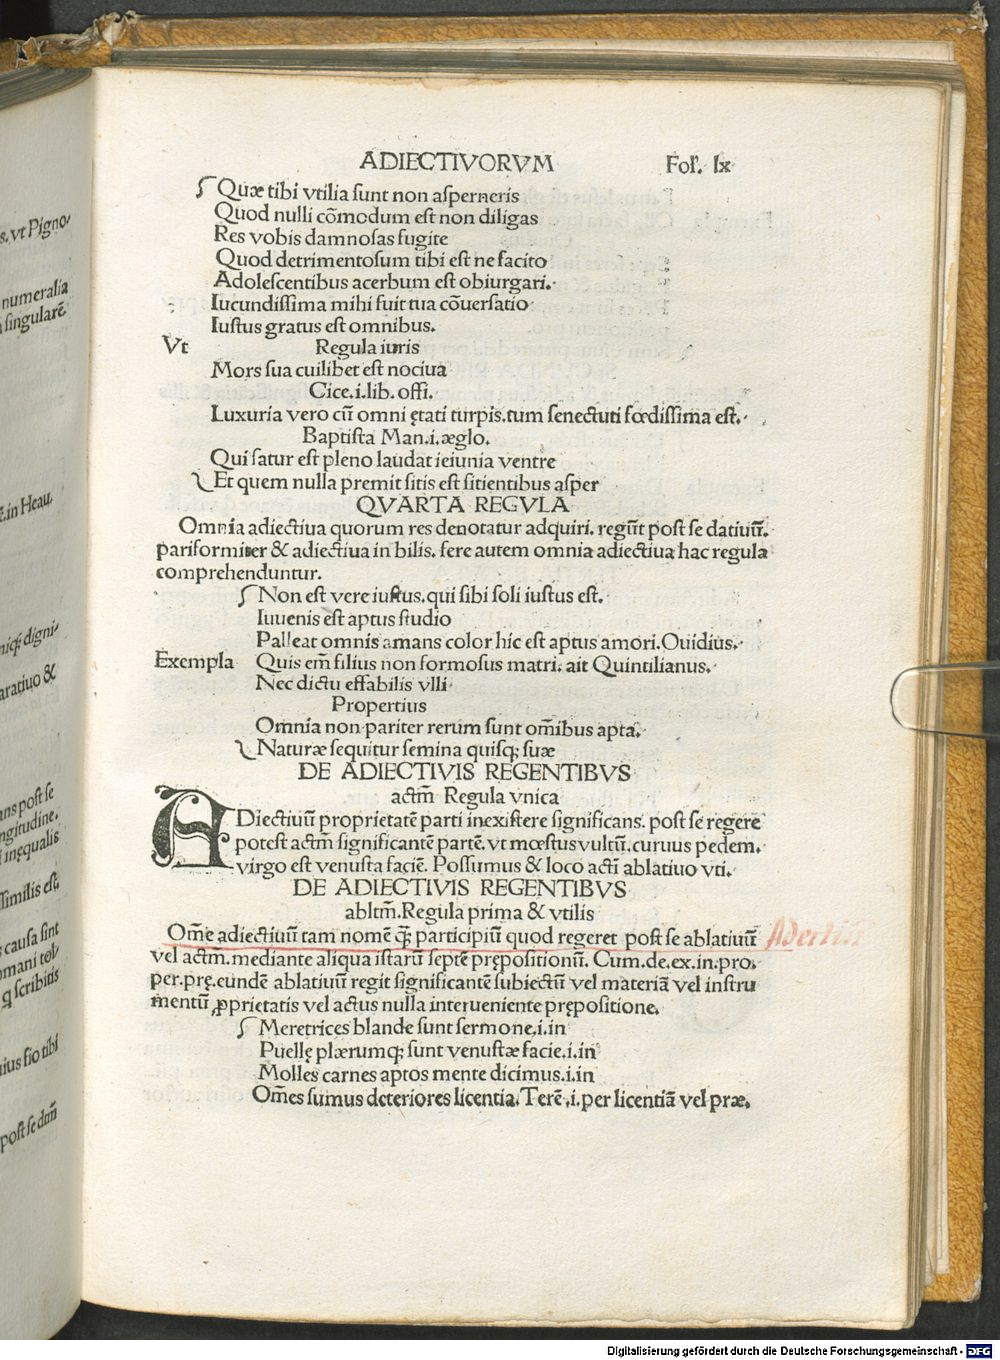 ADIECTIVORVM Fol. Ix
Quæ tibi vtilia sunt non asperneris
Quod nulli cōmodum est non diligas
Res vobis damnosas fugite
Quod detrimentosum tibi est ne facito
Adolescentibus acerbum est obiurgari.
Iucundissima mihi fuit tua cōuersatio
Iustus gratus est omnibus.
Vt Regula iuris
Mors sua cuilibet est nociua
Cice.i.lib.offi.
Luxuria vero cū omni ętati turpis.tum senectuti fœdissima est.
Baptista Man.i.æglo.
Qui satur est pleno laudat ieiunia ventre
Et quem nulla premit sitis est sitientibus asper
QVARTA REGVLA
Omnia adiectiua quorum res denotatur adquiri.regūt post se datiuū.
pariformiter & adiectiua in bilis.fere autem omnia adiectiua hac regula
comprehenduntur.
Non est vere iustus.qui sibi soli iustus est.
Iuuenis est aptus studio
Palleat omnis amans color hic est aptus amori.Ouidius.
Exempla Quis em̄ filius non formosus matri.ait Quintilianus.
Nec dictu effabilis vlli
Propertius
Omnia non pariter rerum sunt om̄ibus apta.
Naturæ sequitur semina quisqꝫ suæ
DE ADIECTIVIS REGENTIBVS
actm̄ Regula vnica
ADiectiuū proprietatē parti inexistere significans.post se regere
potest actm̄ significantē partē.vt mœstus vultū.curuus pedem.
virgo est venusta faciē.Possumus & loco acti ablatiuo vti.
DE ADIECTIVIS REGENTIBVS
abltm̄.Regula prima & vtilis
Om̄e adiectiuū tam nomē qꝫ̄ participiū quod regeret post se ablatiuū
vel actm̄.mediante aliqua istarū septē prępositionū.Cum.de.ex.in.pro.
per.prę.eundē ablatiuū regit significantē subiectū vel materiā vel instru
mentū ꝓprietatis vel actus nulla interueniente prępositione.
Meretrices blande sunt sermone.i.in
Puellę plærumqꝫ sunt venustæ facie.i.in
Molles carnes aptos mente dicimus.i.in
Om̄es sumus deteriores licentia.Terē.i.per licentiā vel præ.
s.vt Pigno
numeralia
singularē.
ē.in Heau.
niqꝫ digni
aratiuo &
ans post se
ngitudine.
inęqualis
ssimilis est.
causa sint
omani tob
q scribitis
uius fio tibi
post se dtm̄
Digitalisierung gefördert durch die Deutsche Forschungsgemeinschaft - DFG